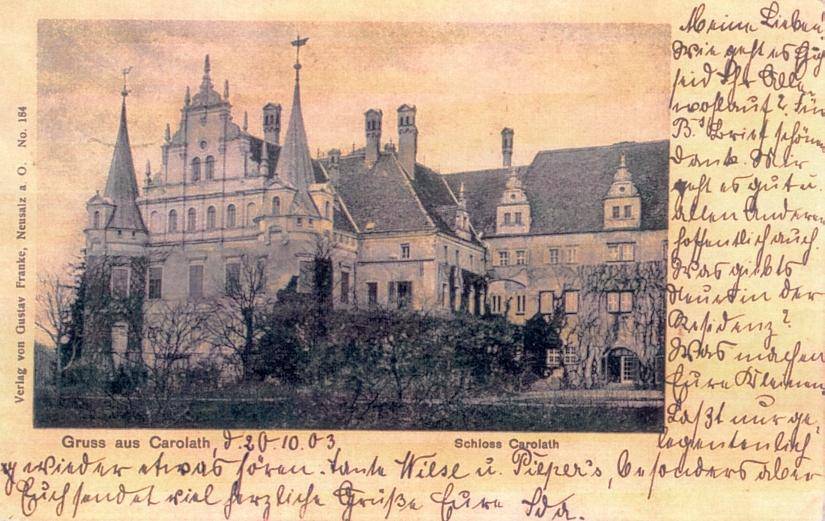 Verlag von Gustav Franke, Neusalz a. O. No. 184
Gruss aus Carolath, d. 20.10.03
Schloss Carolath
Meine Lieben!
Wie geht es Euch
seid Ihr Alle
wohlauf? Für
B's Brief schönen
Dank. Mir
geht es gut u.
allen Anderen
hoffentlich auch.
Was giebts
Neues in der
Residenz?
Was machen
Eure Kleinen
Laßt nur ge-
legentlich
wieder etwas hören. Tante Wilse u. Pieper's, besonders aber
Euch sendet viel herzliche Grüße Eure Ida.